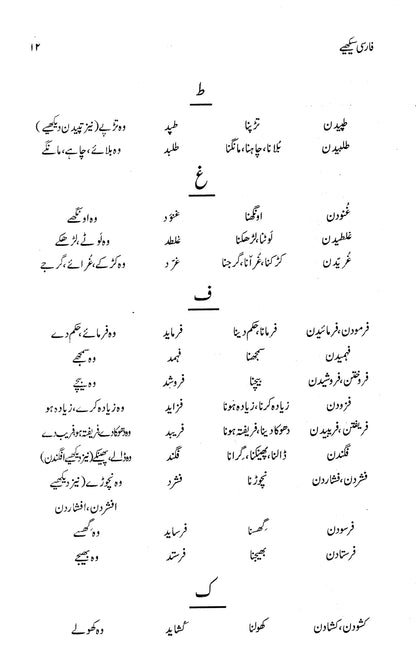 فارسی سیکھیے ۱۲
ط
طپیدن تڑپنا طپد وہ تڑپے (نیز تپیدن دیکھیے)
طلبیدن بُلانا، چاہنا، مانگنا طلبد وہ بلائے، چاہے، مانگے
غ
غُنودن اونگھنا غنوَد وہ اونگھے
غلطیدن لوٹنا، لڑھکنا غلطد وہ لوٹے، لڑھکے
غرّیدن کڑکنا، غُرّانا، گرجنا غرّد وہ کڑکے، غُرائے، گرجے
ف
فرمودن، فرمائیدن فرمانا، حکم دینا فرماید وہ فرمائے، حکم دے
فہمیدن سمجھنا فہمد وہ سمجھے
فروختن، فروشیدن بیچنا فروشد وہ بیچے
فزودن زیادہ کرنا، زیادہ ہونا فزاید وہ زیادہ کرے، زیادہ ہو
فریفتن، فریبیدن دھوکا دینا، فریفتہ ہونا فریبد وہ دھوکا دے، فریفتہ ہو، فریب دے
فگندن ڈالنا، پھینکنا، گرانا فگند وہ ڈالے، پھینکے (نیز دیکھیے افگندن)
فشردن، فشاردن نچوڑنا فشرد وہ نچوڑے (نیز دیکھیے
افشردن، افشاردن
فرسودن گھسنا فرساید وہ گھسے
فرستادن بھیجنا فرستد وہ بھیجے
ک
کشودن، کشادن کھولنا کُشاید وہ کھولے